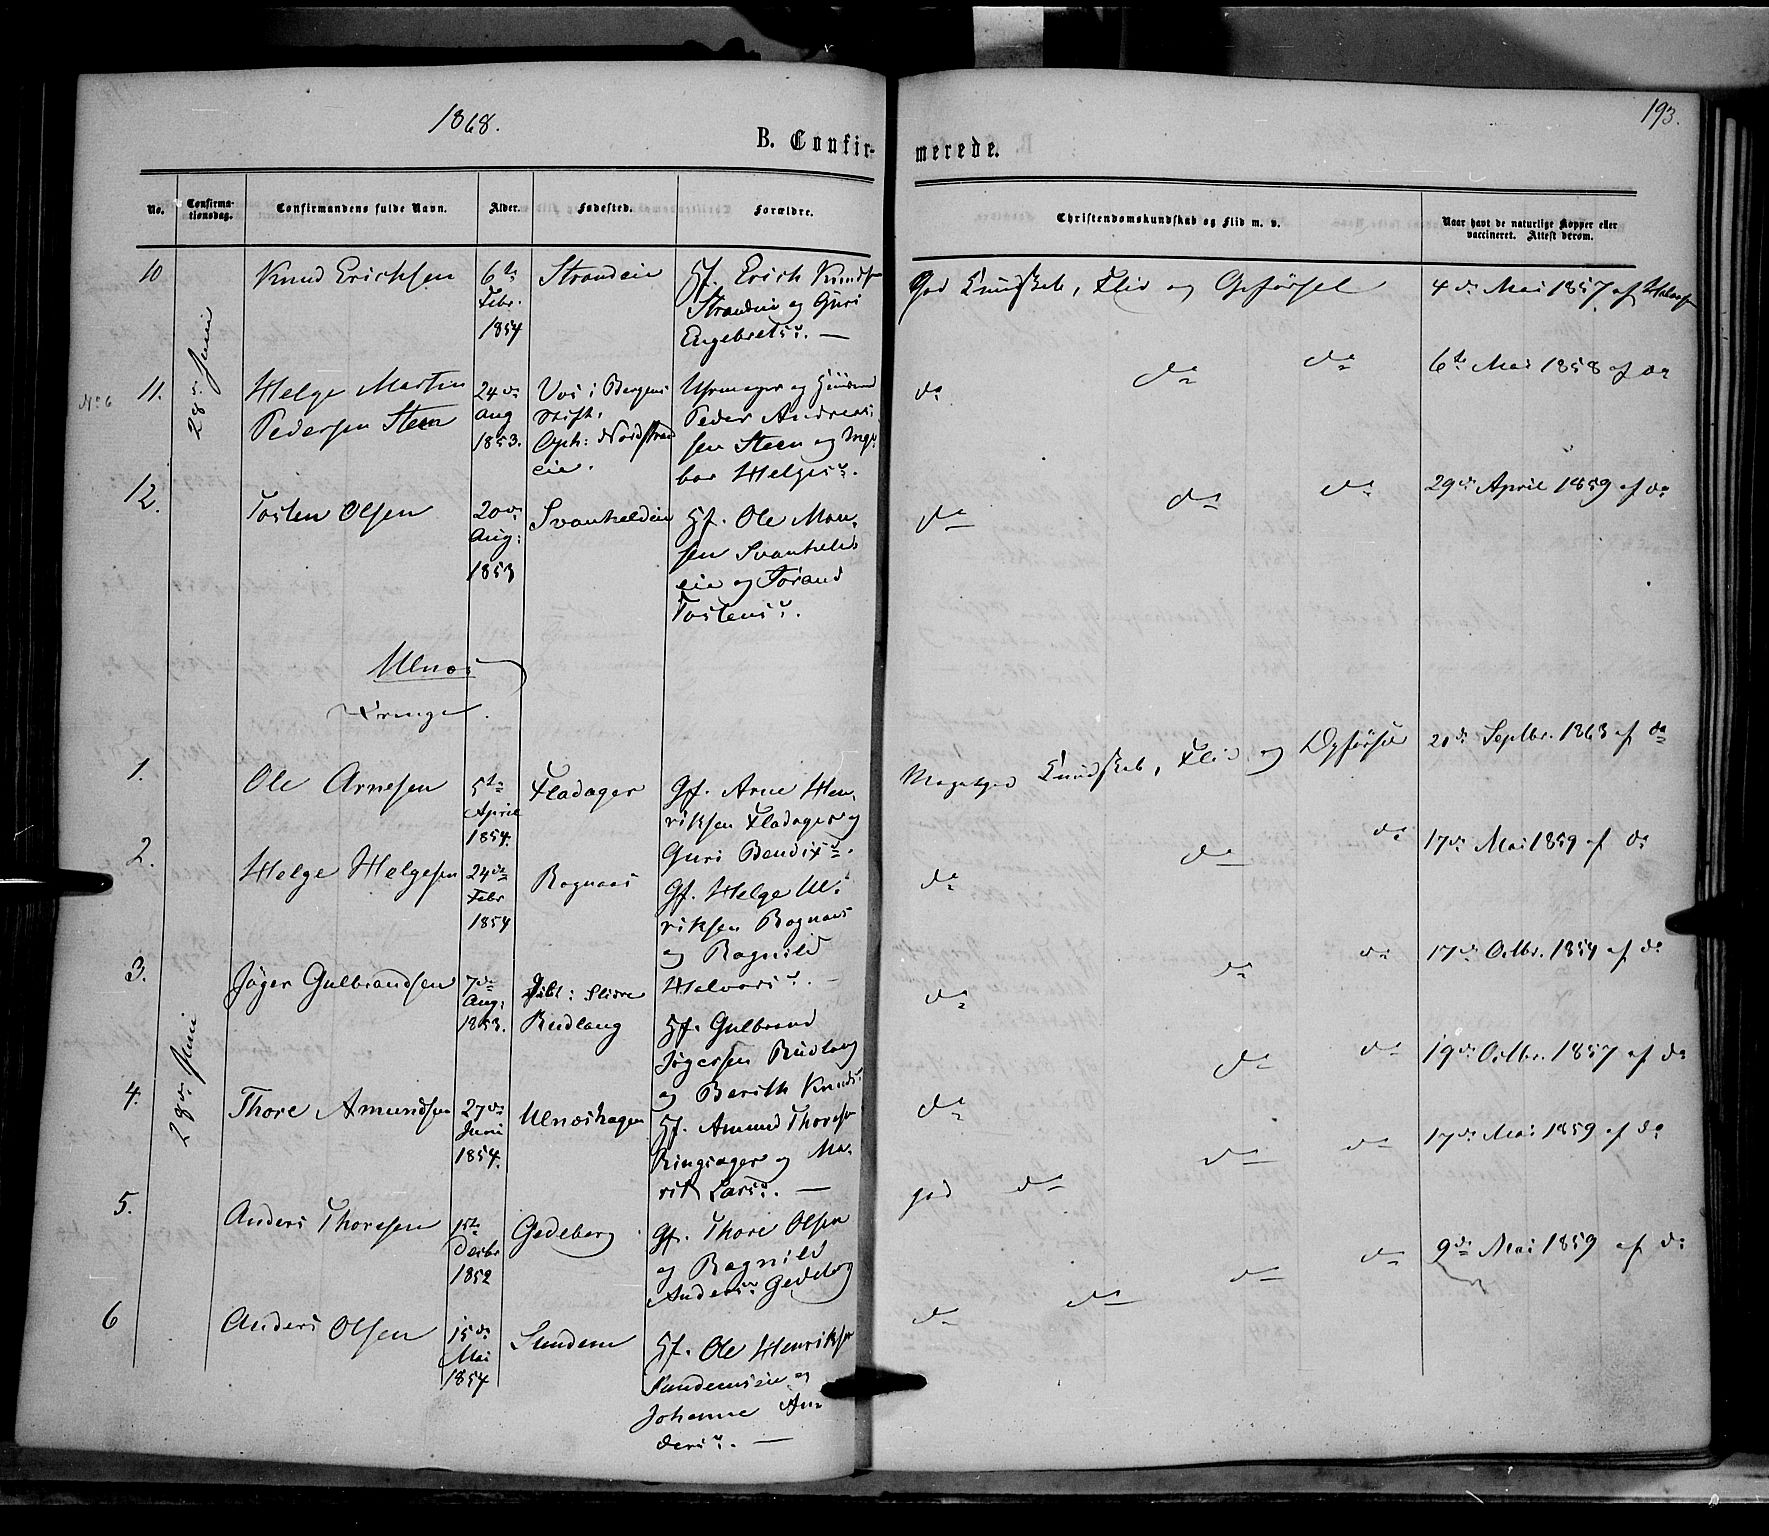 1868.
193.
B. Confir-
merede.
No.
Confirma-
tionsdag.
Confirmandens fulde Navn.
Alder.
Fødested.
Forældre.
Christendomskundskab og Flid m. v.
Naar havt de naturlige Kopper eller
vaccineret. Attest derom.
28de Juni
10
Knud Erichsen
6te
Febr.
1854
Strandeie
Hf. Erich Knuds
Strandeie og Guri
Engebretsd. —
God Kundskab, Flid og Opførsel
4de Mai 1857 af
No 6
11.
Helge Martin
Pedersen Steen
24de
Aug
1853.
Vos i Bergens
Stift.
Oph: Nordstrand
eie.
Urmager og Huusmd
Peder Andreas-
sen Steen og Inge-
bor Helgesd.
do
do
do
6te Mai 1858 af do
12.
Tosten Olsen
20de
Aug:
1853
Svanheldeie
Hf. Ole Mon-
sen Svanheld-
eie og Torand
Tostensd.
do
do
do
29de April 1859 af do
Ulnæs
Drenge.
28de Juni
1.
Ole Arnesen
5te
April
1854.
Fladager
Gf. Arne Hen-
riksen Fladager og
Guri Bendixd.
Megetgod Kundskab, Flid og Opførsel
20de Septbr. 1863 af do
2.
Helge Helgesen
24de
Febr
1854
Rognaas
Gf. Helge Ul-
riksen Rognaas
og Ragnild
Halvorsd. —
do
do
do
17de Mai 1859 af do
3.
Jøger Gulbrandsen
7de
Aug:
1853.
Slidre
Rudlang
Hf. Gulbrand
Jøgersen Rudlang
og Berith Knudsd.
do
do
do
17de Octbr. 1854 af do
4.
Thore Amundsen
27de
Juni
1854.
Ulnæshagen
Hf. Amund Thoresen
Ringsager og Ma-
rit Larsd. —
do
do
do
19de Octbr. 1857 af do
5.
Anders Thoresen
1ste
Decbr
1852
Gedeberg
Gf. Thore Olsen
og Ragnild
Andersd. Gedeberg
god do
do
do
17de Mai 1859 af do
6
Anders Olsen
15de
Mai
1854
Sundeim
Hf. Ole Henriksen
Sundemseie og
Johanne An-
dersd. —
do
do
do
do
9de Mai 1859 af do